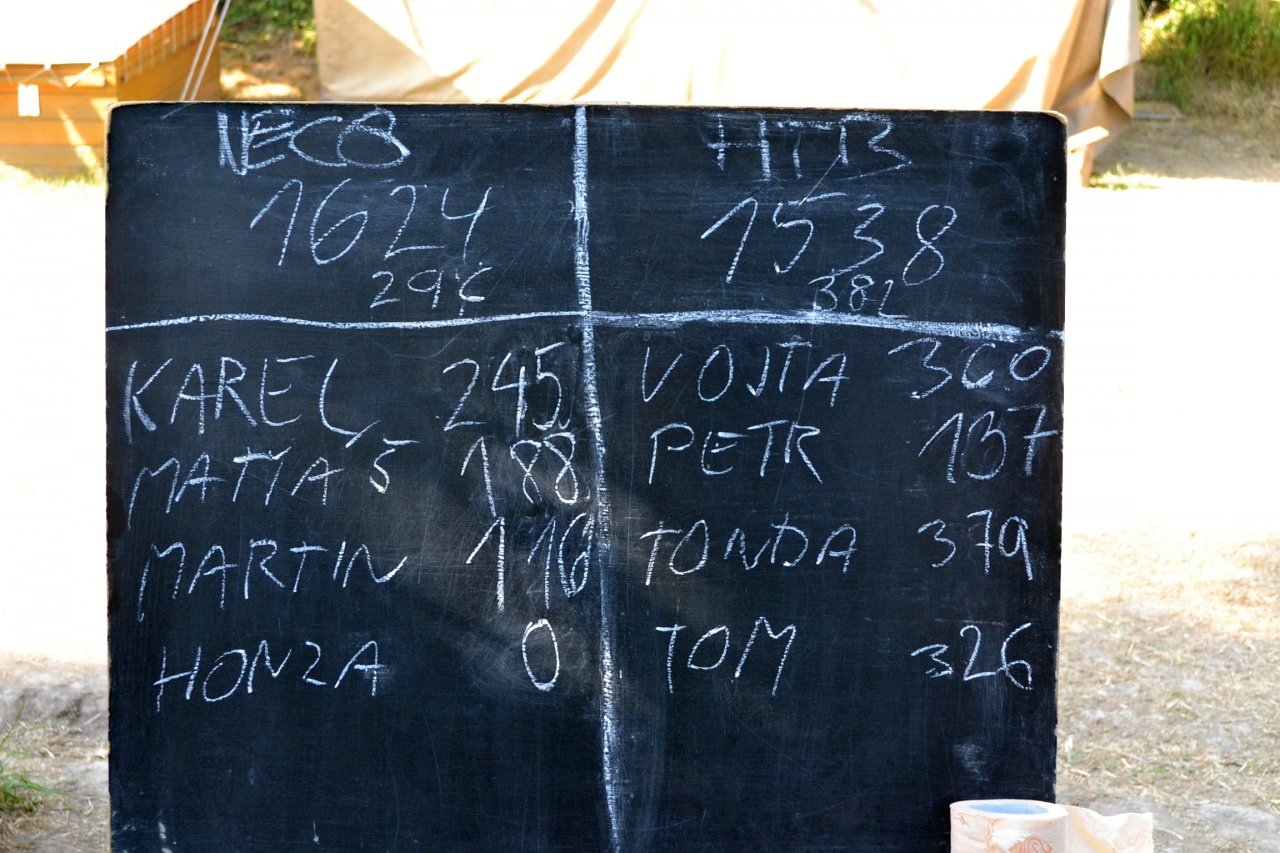 NECO
1624
296
KAREL 245
MATYÁŠ 188
MARTIN 116
HONZA 0
HTB
1538
382
VOJTA 360
PETR 137
TONDA 379
TOM 326